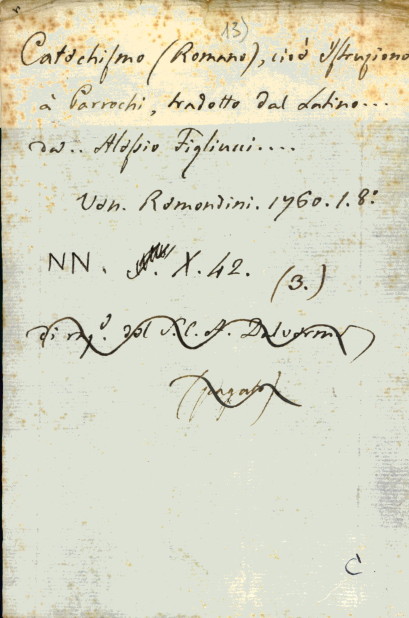 13)
Catechismo (Romano), cioè Istruzione
à Parrochi, tradotto dal Latino...
da.. Alessio Figliucci....
Ven. Remondini. 1760. 1. 8º
NN. X. 42.
(3.)
di rag.e del S.C.A. Dalverme
C